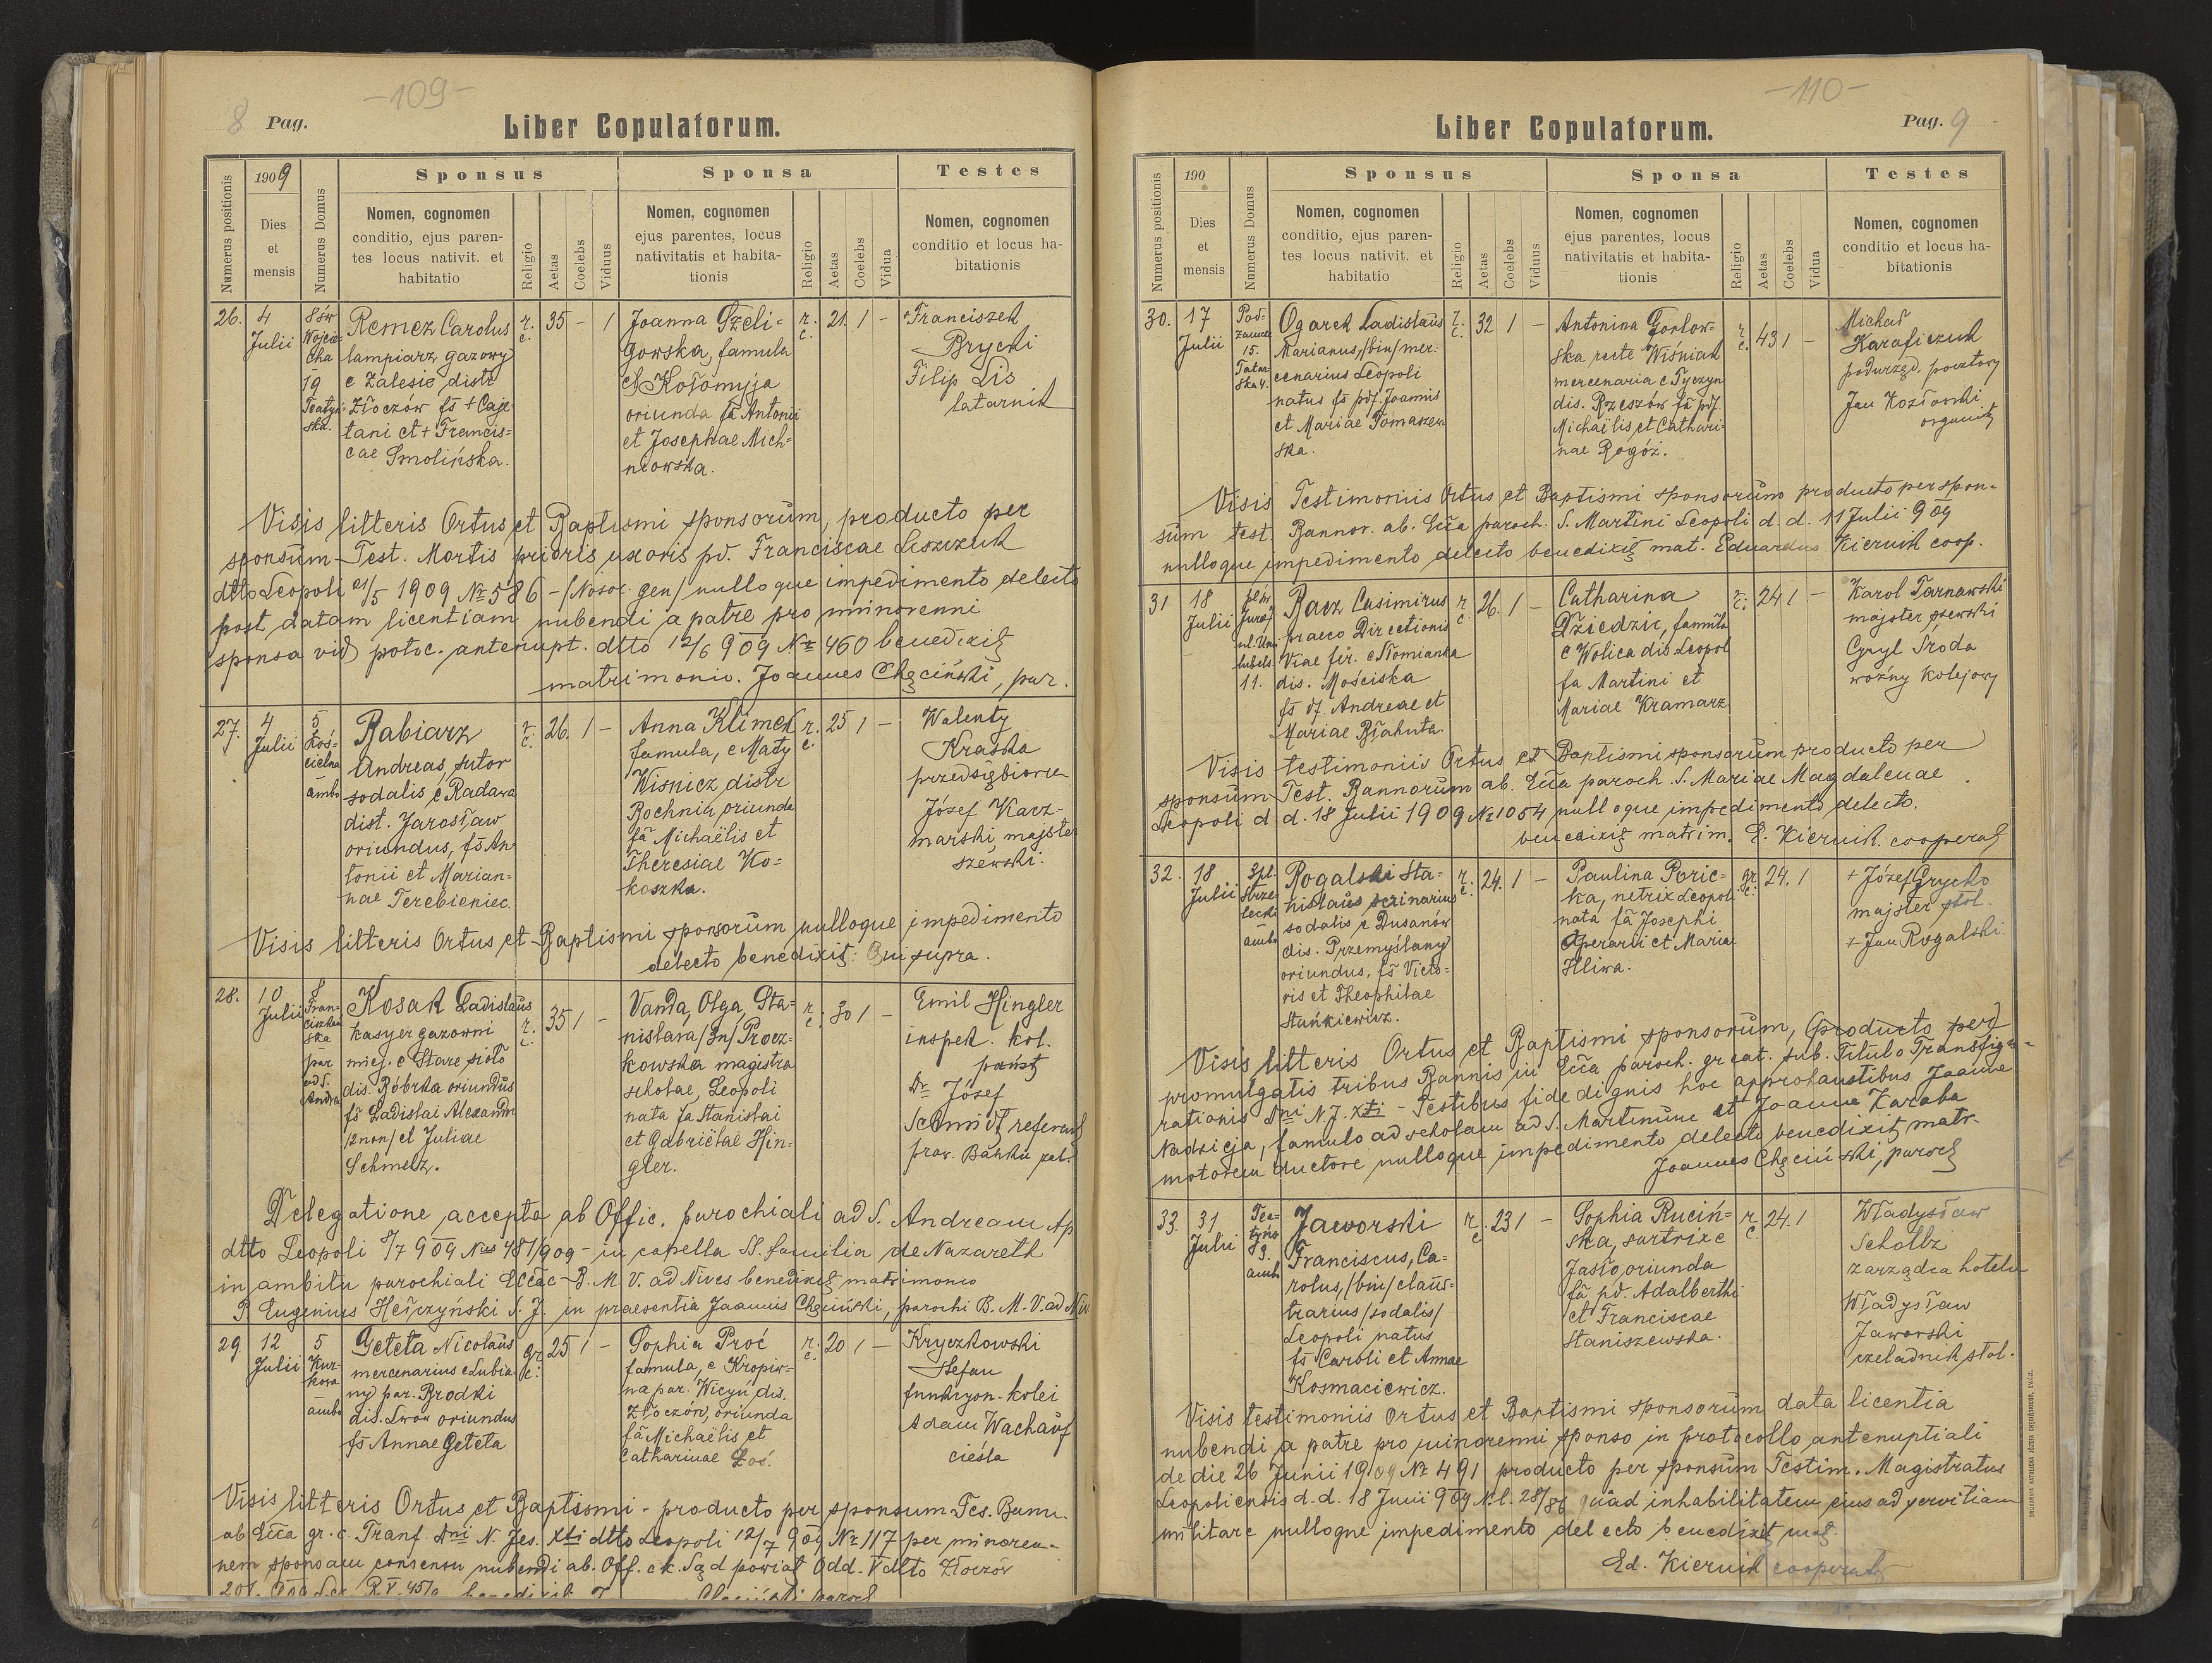 -109-
8 Pag.
Liber Copulatorum.
Numerus positionis
1909
Dies
et
mensis
Numerus Domus
Sponsus
Nomen, cognomen
conditio, ejus paren-
tes locus nativit. et
habitatio
Religio
Aetas
Coelebs
Viduus
Sponsa
Nomen, cognomen
ejus parentes, locus
nativitatis et habita-
tionis
Religio
Aetas
Coelebs
Vidua
Testes
Nomen, cognomen
conditio et locus ha-
bitationis
26.
4
Julii
8 św
Wojcie-
cha
19
Teatyń-
ska.
Remez Carolus
lampiarz gazowy
e Zalesie distr
Złoczów fs + Caje
tani et + Francis=
cae Smolińska.
r.
c.
35 - 1
Joanna Szeli=
gowska, famula
e Kołomyja
oriunda fa Antonii
et Josephae Mich=
nowska.
r.
c.
21. 1 -
+Franciszek
Brycki
Filip Lis
latarnik
Visis litteris Ortus et Baptismi sponsorum, producto per
sponsum - Test. Mortis prioris uxoris pd. Franciscae Liszczuk
dtto Leopoli 21/5 1909 No 586 - /Nosoc. gen/ nulloque impedimento detecto
post datam licentiam nubendi a patre pro minorenni
sponsa vid protoc. antenupt. dtto 12/6 909 No 460 benedixit
matrimonio. Joannes Chęciński, par.
27.
4
Julii
5
Koś=
cielna
-
ambo
Babiarz
Andreas, sutor
sodalis e Radawa
dist. Jarosław
oriundus, fs An
tonii et Marian=
nae Terebieniec.
r.
c.
26. 1 -
Anna Klimek
famula, e Mały
Wisnicz distr
Bochnia, oriunda
fa Michaëlis et
Theresiae Ko=
koszka.
r.
c.
25 1 -
Walenty
Kraska
przedsiębiorca
Józef Karz-
marski, majste
szewski.
Visis litteris Ortus et Baptismi sponsorum nulloque impedimento
detecto benedixit: Qui supra.
28.
10
Julii
8
Fran-
ciszkań
ska
-
par
ad S.
Andrea
Kosak Ladislaus
kasyer gazowni
miej. e Stare sioło
dis. Bóbrka oriundus
fs Ladislai Alexandri
/2 non/ et Juliae
Schmelz.
r.
c.
35 1 -
Vanda, Olga, Sta=
nislava /3n/ Procz=
kowska magistra
scholae, Leopoli
nata fa Stanislai
et Gabriëlae Hin=
gler.
r
c.
30 1 -
Emil Hingler
inspek. kol.
państ
Dr Józef
Schmidt referent
praw. Banku pal.
Delegatione accepta ab Offic. parochiali ad S. Andream Ap
dtto Leopoli 8/7 909 Nus 481/909 - in capella SS. Familia de Nazareth
in ambitu parochiali Eccae B. M. V. ad Nives benedixit matrimonio
P. Eugenius Hełczyński S. J. in praesentia Joannis Chęciński, parochi B. M. V. ad Niv
29.
12
Julii
5
Kur-
kowa
-
ambo
Geteta Nicolaus
mercenarius e Lubia
ny par. Brodki
dis. Lwów oriundus
fs Annae Geteta
gr
c.
25 1 -
Sophia Proć
famula, e Kropiw=
na par. Wicyń, dis.
Złoczów, oriunda
fa Michaëlis et
Catharinae Łoś.
r.
c.
20 1 -
Kryczkowski
Stefan
funkcyon. kolei
Adam Wachauf
cieśla
Visis litteris Ortus et Baptismi - producto per sponsum Tes. Bann.
ab Ecca gr. c. Transf. Dni N. Jes. Xti dtto Leopoli 12/7 909 No 117 per minoren-
nem sponsam consensu nubendi ab. Off. c k. Sąd powiat Odd. V dtto Złoczów
-110-
Liber Copulatorum.
Pag. 9
Numerus positionis
190
Dies
et
mensis
Numerus Domus
Sponsus
Nomen, cognomen
conditio, ejus paren-
tes locus nativit. et
habitatio
Religio
Aetas
Coelebs
Viduus
Sponsa
Nomen, cognomen
ejus parentes, locus
nativitatis et habita-
tionis
Religio
Aetas
Coelebs
Vidua
Testes
Nomen, cognomen
conditio et locus ha-
bitationis
30.
17
Julii
Pod-
zamcze
15.
Tatar-
ska 4.
Ogarek Ladislaus
Marianus, /bin/ mer=
cenarius Leopoli
natus fs pdf. Joannis
et Mariae Tomaszew
ska.
r.
c.
32 1 -
Antonina Gorlow-
ska recte Wiśniak
mercenaria e Tyczyn
dis. Rzeszów fa pdf.
Michaëlis et Cathari-
nae Rogóż.
r
c.
43 1 -
Michał
Karaficzuk
podurzęd. pocztowy
Jan Kozłowski
organist
Visis Testimoniis Ortus et Baptismi sponsorum producto per spon-
sum test. Bannor. ab. Ecca paroch. S. Martini Leopoli d. d. 11 Julii 909
nulloque impedimento detecto benedixit mat. Eduardus Kiernik coop.
31
18
Julii
pl św
Jura 7
ul. Uni
lubels.
11.
Racz Casimirus
praeco Directionis
Viae fer. e Słomianka
dis. Mościska
fs df. Andreae et
Mariae Błahuta.
r
c.
26. 1 -
Catharina
Dziedzic, famula
e Wolica dis Leopol
fa Martini et
Mariae Kramarz
r.
c.
24 1 -
Karol Tarnawski
majster szewski
Cyryl Środa
woźny kolejowy
Visis testimoniis Ortus et Baptismi sponsorum producto per
sponsum Test. Bannorum ab. Ecca paroch. S. Mariae Magdalenae
Leopoli d d. 18 Julii 1909 No 1054 nulloque impedimento detecto.
benedixit matrim. E. Kiernik. cooperat
32.
18
Julii
3 pl.
Strze-
lecki
-
ambo
Rogalski Sta-
nislaus scrinarius
sodalis e Dusanów
dis. Przemyślany
oriundus, fs Victo=
ris et Theophilae
Stańkiewicz.
r.
c.
24. 1 -
Paulina Poric-
ka, netrix Leopoli
nata fa Josephi
Operarii et Maria
Hliwa.
gr
c.
24. 1
+ Józef Grycko
majster stol.
+ Jan Rogalski.
Visis litteris Ortus et Baptismi sponsorum, producto per
promulgatis tribus Bannis in Ecca paroch. gr cat. sub. Titulo Transfigu-
rationis Dni N J. Xti - Testibus fide dignis hoc approbantibus Joanne
Nadzieja, famulo ad scholam ad S. Martinum et Joanne Karaba
motorem ductore nulloque impedimento detecto benedixit matr.
Joannes Chęciński, paroch
33.
31
Julii
Tea-
tyńs
3.
amb
Jaworski
Franciscus, Ca-
rolus, /bin/ claus=
trarius /sodalis/
Leopoli natus
fs Caroli et Annae
Kosmaciewicz.
r.
c
23 1 -
Sophia Ruciń-
ska, sartrix e
Jasło oriunda
fa pd. Adalberthi
et Franciscae
Staniszewska.
r
c.
24. 1
Władysław
Scholtz
zarządca hotelu
Władysław
Jaworski
czeladnik stol.
Visis testimoniis Ortus et Baptismi sponsorum data licentia
nubendi a patre pro minorenni sponso in protocollo antenuptiali
de die 26 Junii 1909 No 491 producto per sponsum Testim. Magistratus
Leopoliensis d. d. 18 Junii 909 N. l. 28/86 quad inhabilitatem eius ad servitiam
militare nulloque impedimento detecto benedixit mat.
Ed. Kiernik cooperat